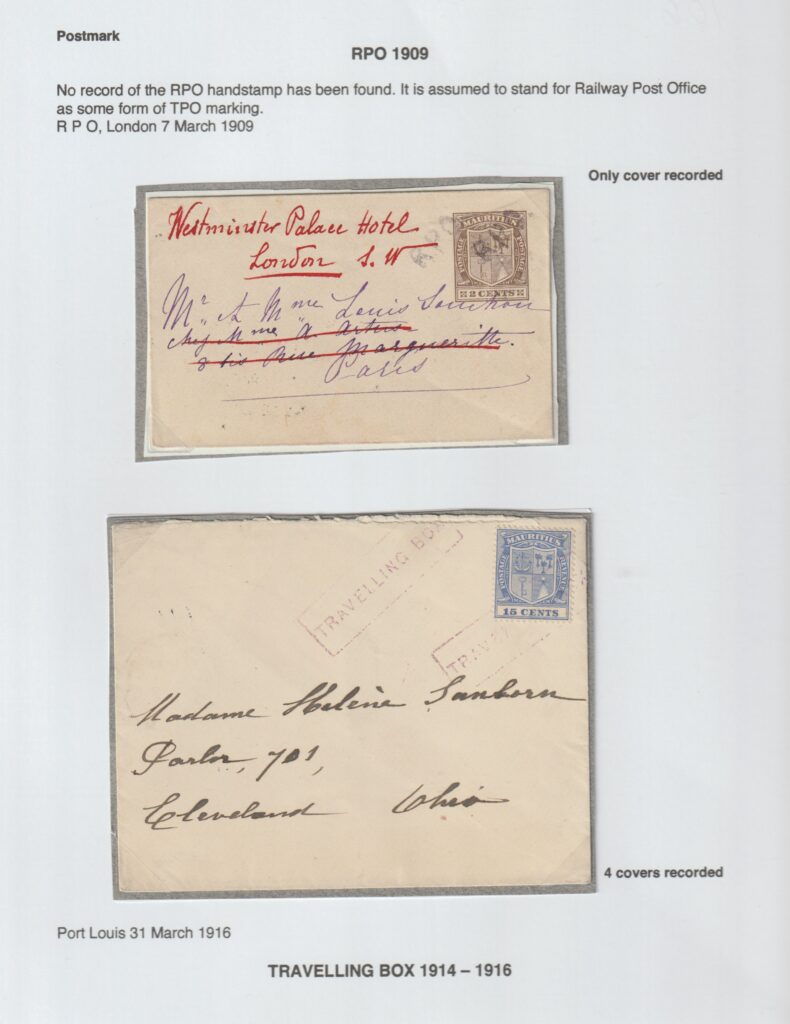 Postmark
RPO 1909
No record of the RPO handstamp has been found. It is assumed to stand for Railway Post Office
as some form of TPO marking.
R P O, London 7 March 1909
Only cover recorded
Westminster Palace Hotel
London S. W
RPO
MAURITIUS
POSTAGE
2 CENTS
Mr et Mme Louis
chez Mme A. Artus
8 bis Rue Margueritte.
Paris
TRAVELLING BOX
MAURITIUS
POSTAGE REVENUE
15 CENTS
TRAVE
Madame Helène Sanborn
Parlor, 701,
Cleveland Ohio
4 covers recorded
Port Louis 31 March 1916
TRAVELLING BOX 1914 – 1916